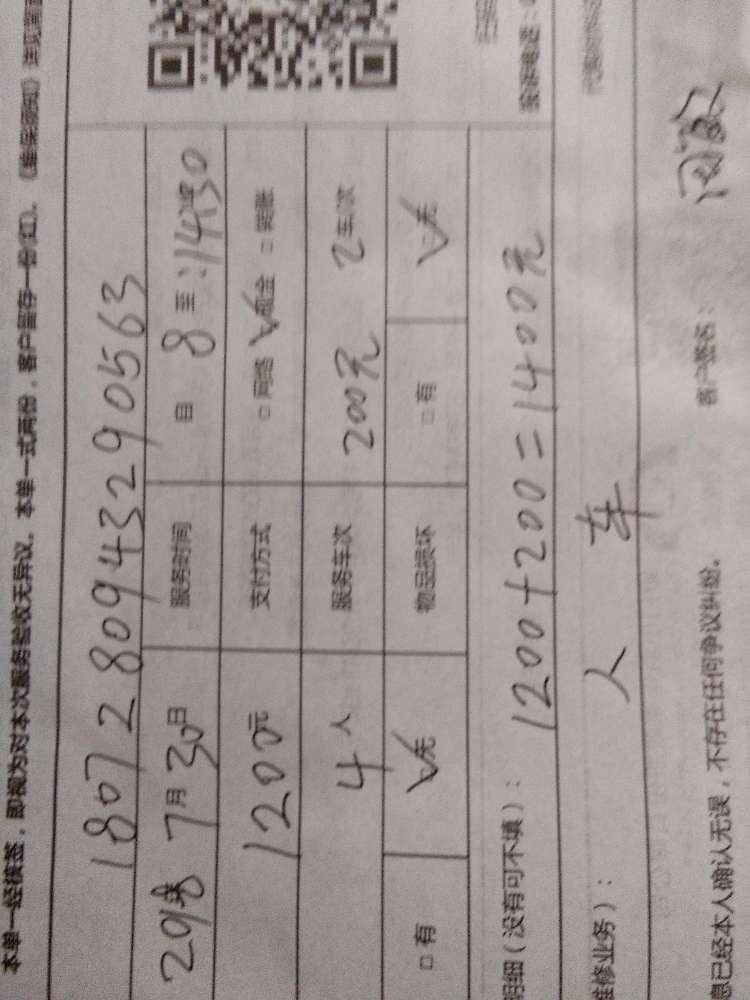 本单一经核签，即视为对本次服务验收无异议。本单一式两份，客户留存一份(红)。
180728094329 0563
2018年 7月 30日 服务时间 日 8 至:14:30
1200元 支付方式 □ 网络 √ 现金 □ 转账
4人 服务车次 200元 2车/次
□ 有 √ 无 物品损坏 □ 有 √ 无
明细（没有可不填）： 1200+200=1400元
维修业务）： 人 车
息已经本人确认无误，不存在任何争议纠纷。 客户签名：